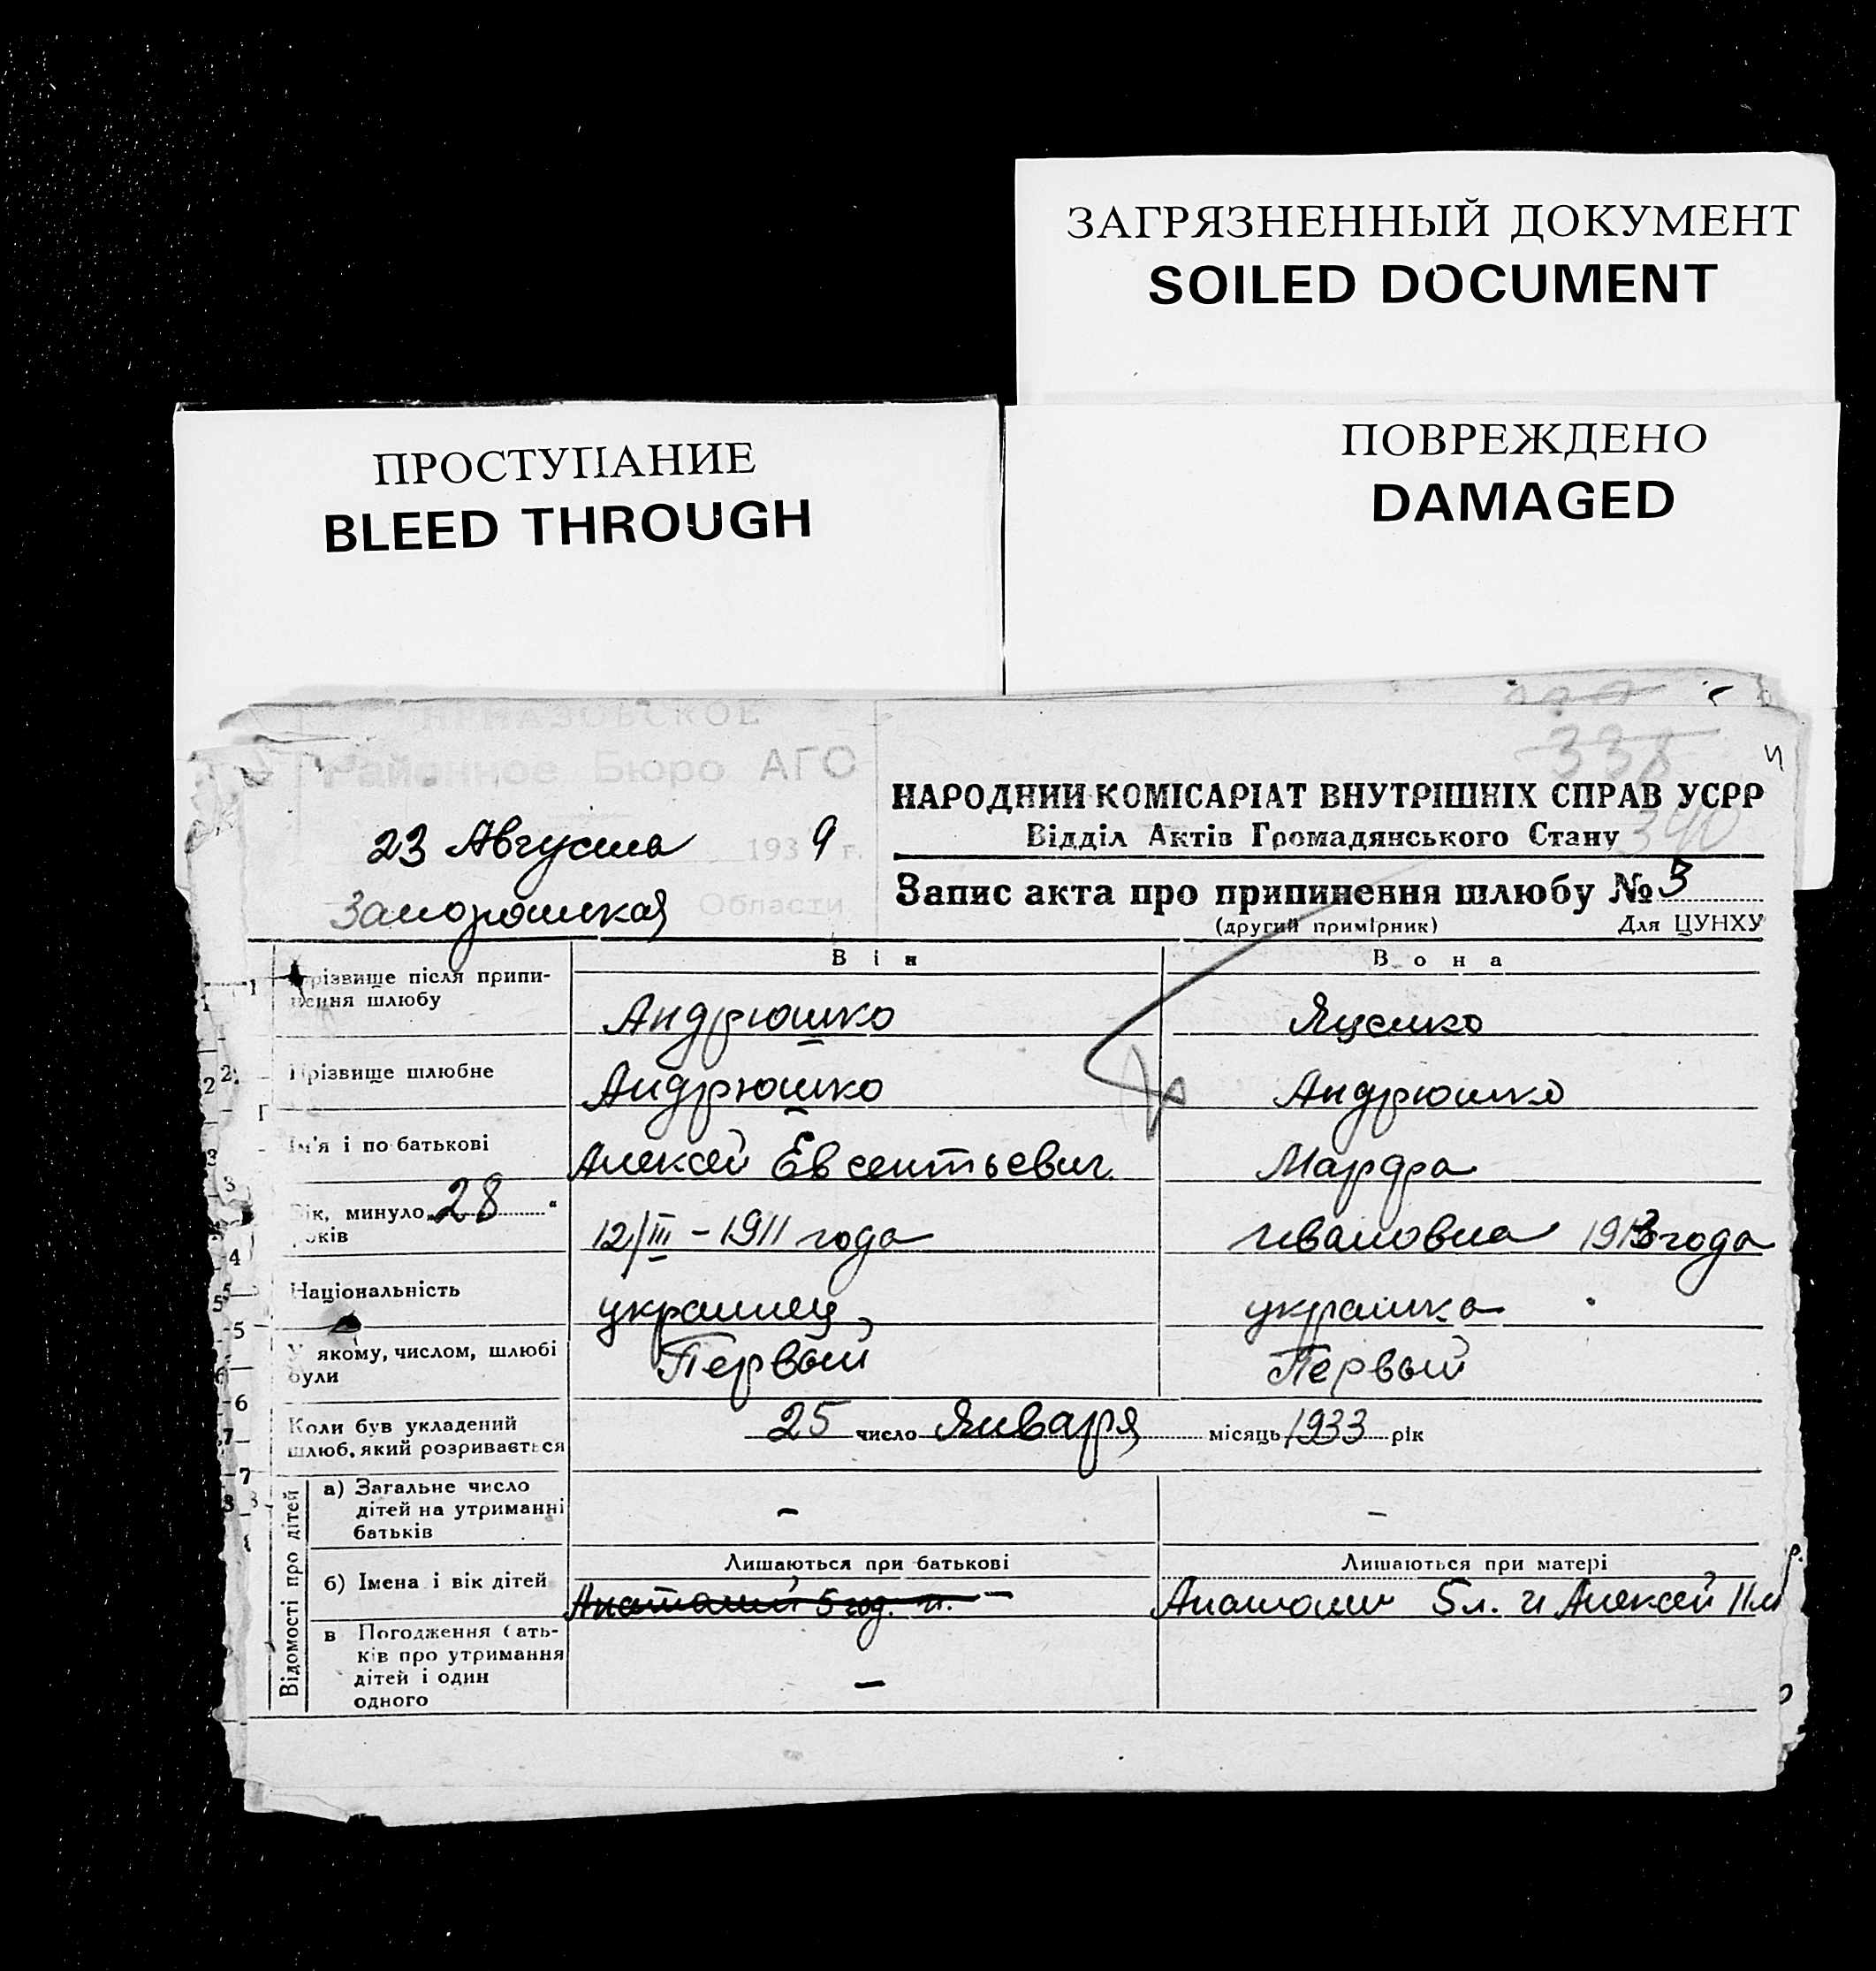 ЗАГРЯЗНЕННЫЙ ДОКУМЕНТ
SOILED DOCUMENT
ПРОСТУПАНИЕ
BLEED THROUGH
ПОВРЕЖДЕНО
DAMAGED
ПРИАЗОВСКОЕ
Районное Бюро АГО
23 Августа 1939 г.
Запорожская Области
338
340
НАРОДНИЙ КОМІСАРІАТ ВНУТРІШНІХ СПРАВ УСРР
Відділ Актів Громадянського Стану
Запис акта про припинення шлюбу № 3
(другий примірник) Для ЦУНХУ
Він Вона
1 Прізвище після припинення шлюбу Андрюшко Яценко
2 Прізвище шлюбне Андрюшко Андрюшко
Ім'я і по батькові Алексей Евсентьевич Марфа
Вік, минуло 28 років 12/III – 1911 года Ивановна 1913 года
Національність украинец украинка
У якому, числом, шлюбі були Первый Первый
Коли був укладений шлюб, який розривається 25 число Января місяць 1933 рік
Відомості про дітей
а) Загальне число дітей на утриманні батьків – –
Лишаються при батькові Лишаються при матері
б) Імена і вік дітей Анатолий 5 год. Анатолий 5 л. и Алексей 11 м
в Погодження батьків про утримання дітей і один одного –